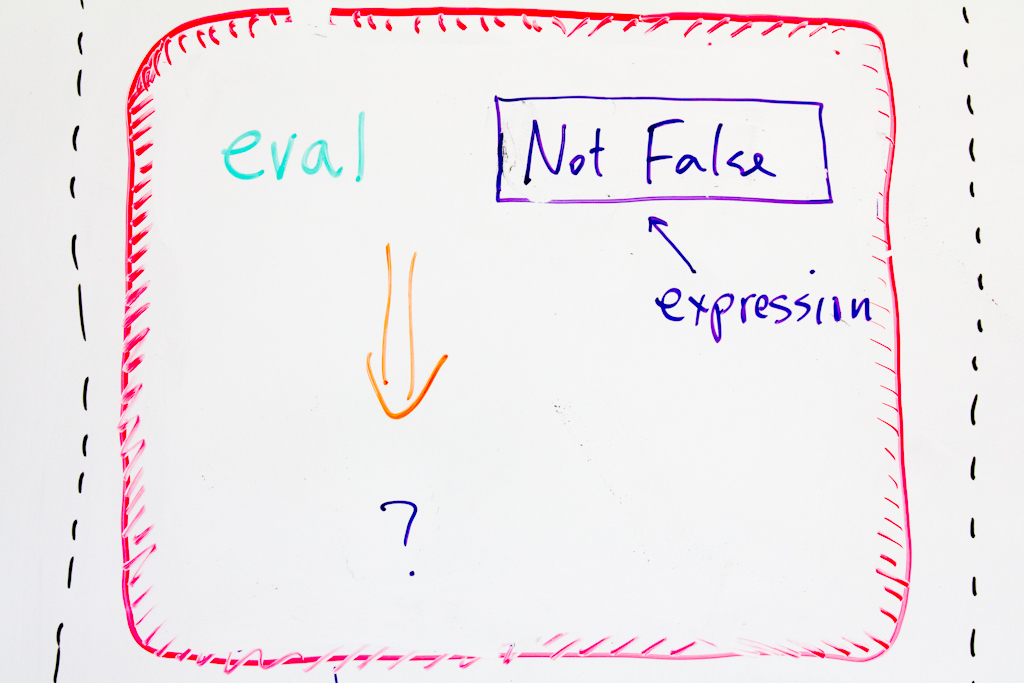 eval Not False
expression
?